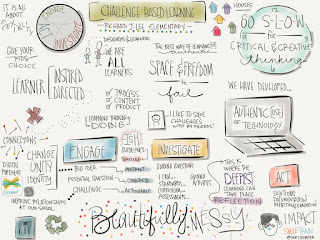 IT IS ALL
ABOUT
ENGAGE
INVESTIGATE
ACT
CHALLENGE BASED LEARNING
RICHARD J LEE ELEMENTARY
HOUSES
GO S-L-O-W
for
CRITICAL & CREATIVE
thinking
GIVE YOUR
KIDS
CHOICE
DESIGNERS & LEARNERS
WE ARE
ALL
LEARNERS
THE BEST WAY OF LEARNING IS
SPACE & FREEDOM
to
fail
LEARNER
INSPIRED
DIRECTED
PROCESS
OF CONTENT
PRODUCT
LEARNING THROUGH
DOING
I LIKE TO SOLVE
CHALLENGES
WITH MY FRIENDS!
WE HAVE DEVELOPED...
AUTHENTIC USE
OF TECHNOLOGY
CONNECTIONS
DIGITAL
PARTNERS
CHANGE
UNITY
IDENTITY
ENGAGE
BIG IDEA
ESSENTIAL QUESTION
CHALLENGE
ISH
GUIDELINES
ABSTRACT
CONCRETE
ACTIONABLE
INVESTIGATE
GUIDING QUESTIONS
I CAN...
STANDARDS
CURRICULUM
ACTIVITIES
THIS IS
WHERE THE
DEEPEST
LEARNING
CAN TAKE
PLACE
REFLECTION
ACT
SOLUTIONS
IMPROVE RELATIONSHIPS
AT OUR SCHOOL
Beautifully MESSY
IMPACT
SMILE TRAIN